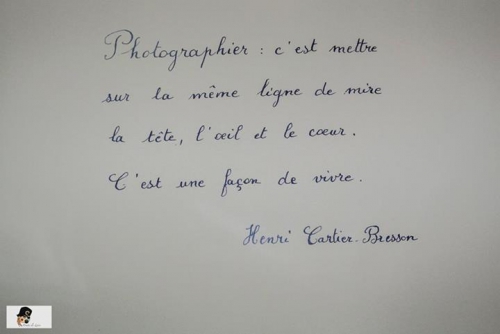 Photographier : c'est mettre
sur la même ligne de mire
la tête, l'œil et le cœur.
C'est une façon de vivre.
Henri Cartier-Bresson